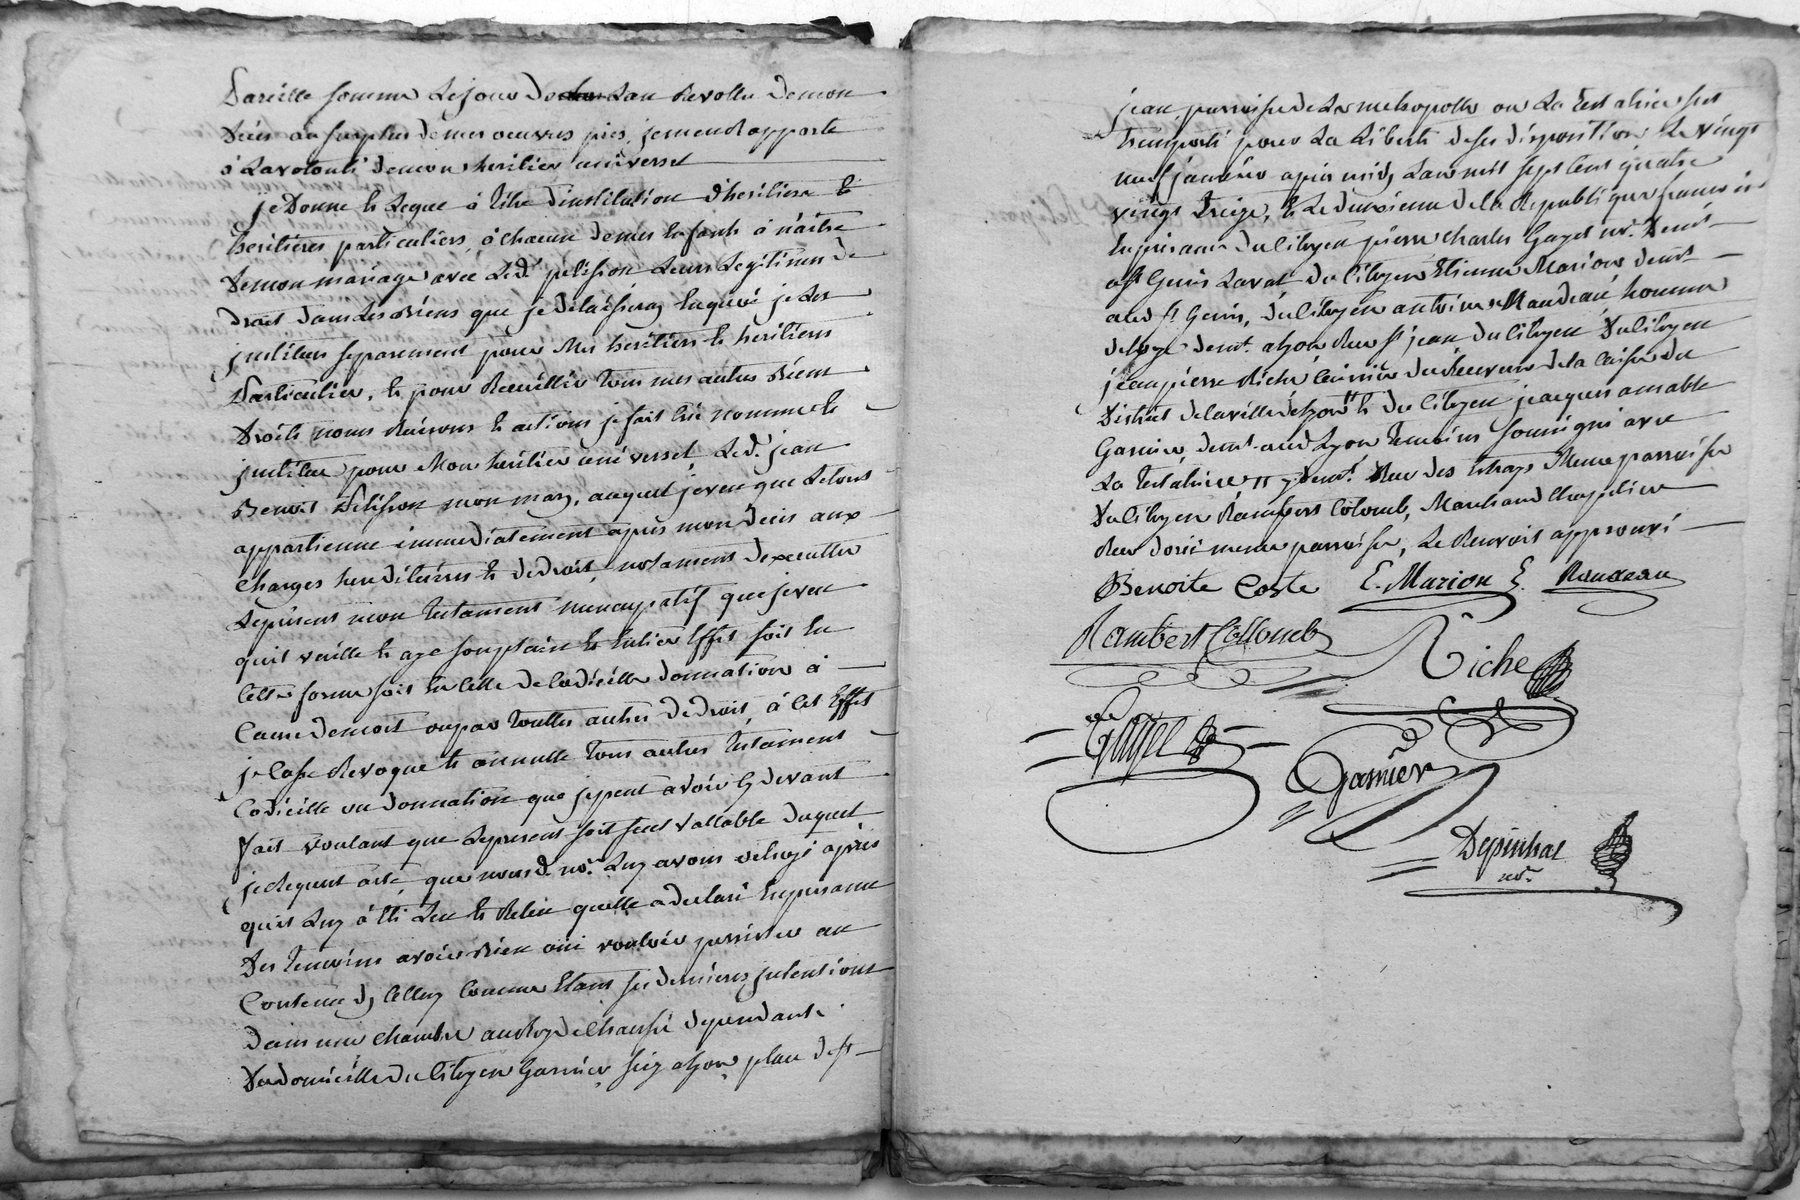 Pareille somme le jour de lan revollu de mon
décès au surplus de mes oeuvres pies, je men rapporte
à la volonté de mon heritier universel
je Donne et Legue à titre dinstitution dheritiers et
heritieres particuliers, à chacun de mes Enfants à naitre
de mon mariage avec led. pelission Leurs Legitimes de
droit dans les Biens que je délaisseray Enquoi je les
institue separement pour Mes heritiers et heritieres
Particuliers, et pour Recueillir tous mes autres Biens
Droits noms Raisons et actions je fait Créé nomme et
institue pour Mon heritier universel, Led. jean
Benoit Pelission mon mary, auquel je veux que Le tous
appartienne immediatement après mon décès aux
charges hereditaires et de droit, notament d'executter
Le présent mon testament nuncupatif que je veux
quil vaille et aye son plain et Entier Effet soit En
cette forme soit En celle de codicille donnation à
Cause de mort ou par touttes autres de droit, à cet Effet
je Casse Revoque et annulle tous autres testament
Codicille ou donnation que je peut avoir cy devant
fait voulant que le present soit seul vallable duquel
je requert acte, que nous d. nore. Luy avons octroyé après
quil Luy à Eté Leu et Relu quelle a declaré En presance
des temoins avoir Bien oui vouloir persister au
Contenu dy celluy comme Etant ses dernieres intentions
dans une chambre au Rez de chaussé dependante
du domicille du Citoyen Garnier sciz a Lyon place de st
jean, parroisse de La metropolle ou La testatrice sest
transporté pour La Liberté de ses disposition Le vingt
neuf janvier après midy Lan mil sept Cent quatre
vingt treize, et Le deuxieme de la Republique francoise
En présance du Citoyen pierre charles Gayet nore. demt
a st Genis Laval du Citoyen Etienne Marion demt
aud st Genis, du Citoyen antoine Randeau homme
de Loge demt. a Lyon Rue st jean du Citoyen du Citoyen
jean pierre Riche Caissier du Receveur de la Caisse du
District de la ville de Lyon et du Citoyen jacques amable
Garnier, demt. aud Lyon temoins soussigné avec
La testatrice y demt. Rue des Estraps meme parroisse
du Citoyen Rambert Colomb, Marchand Chapelier
Rue dorée meme parroisse, Le Renvoit approuvé
Benoite Coste E. Marion Randeau
Rambert Collomb
Riche
Gayet
Garnier
Depinhac
nore.